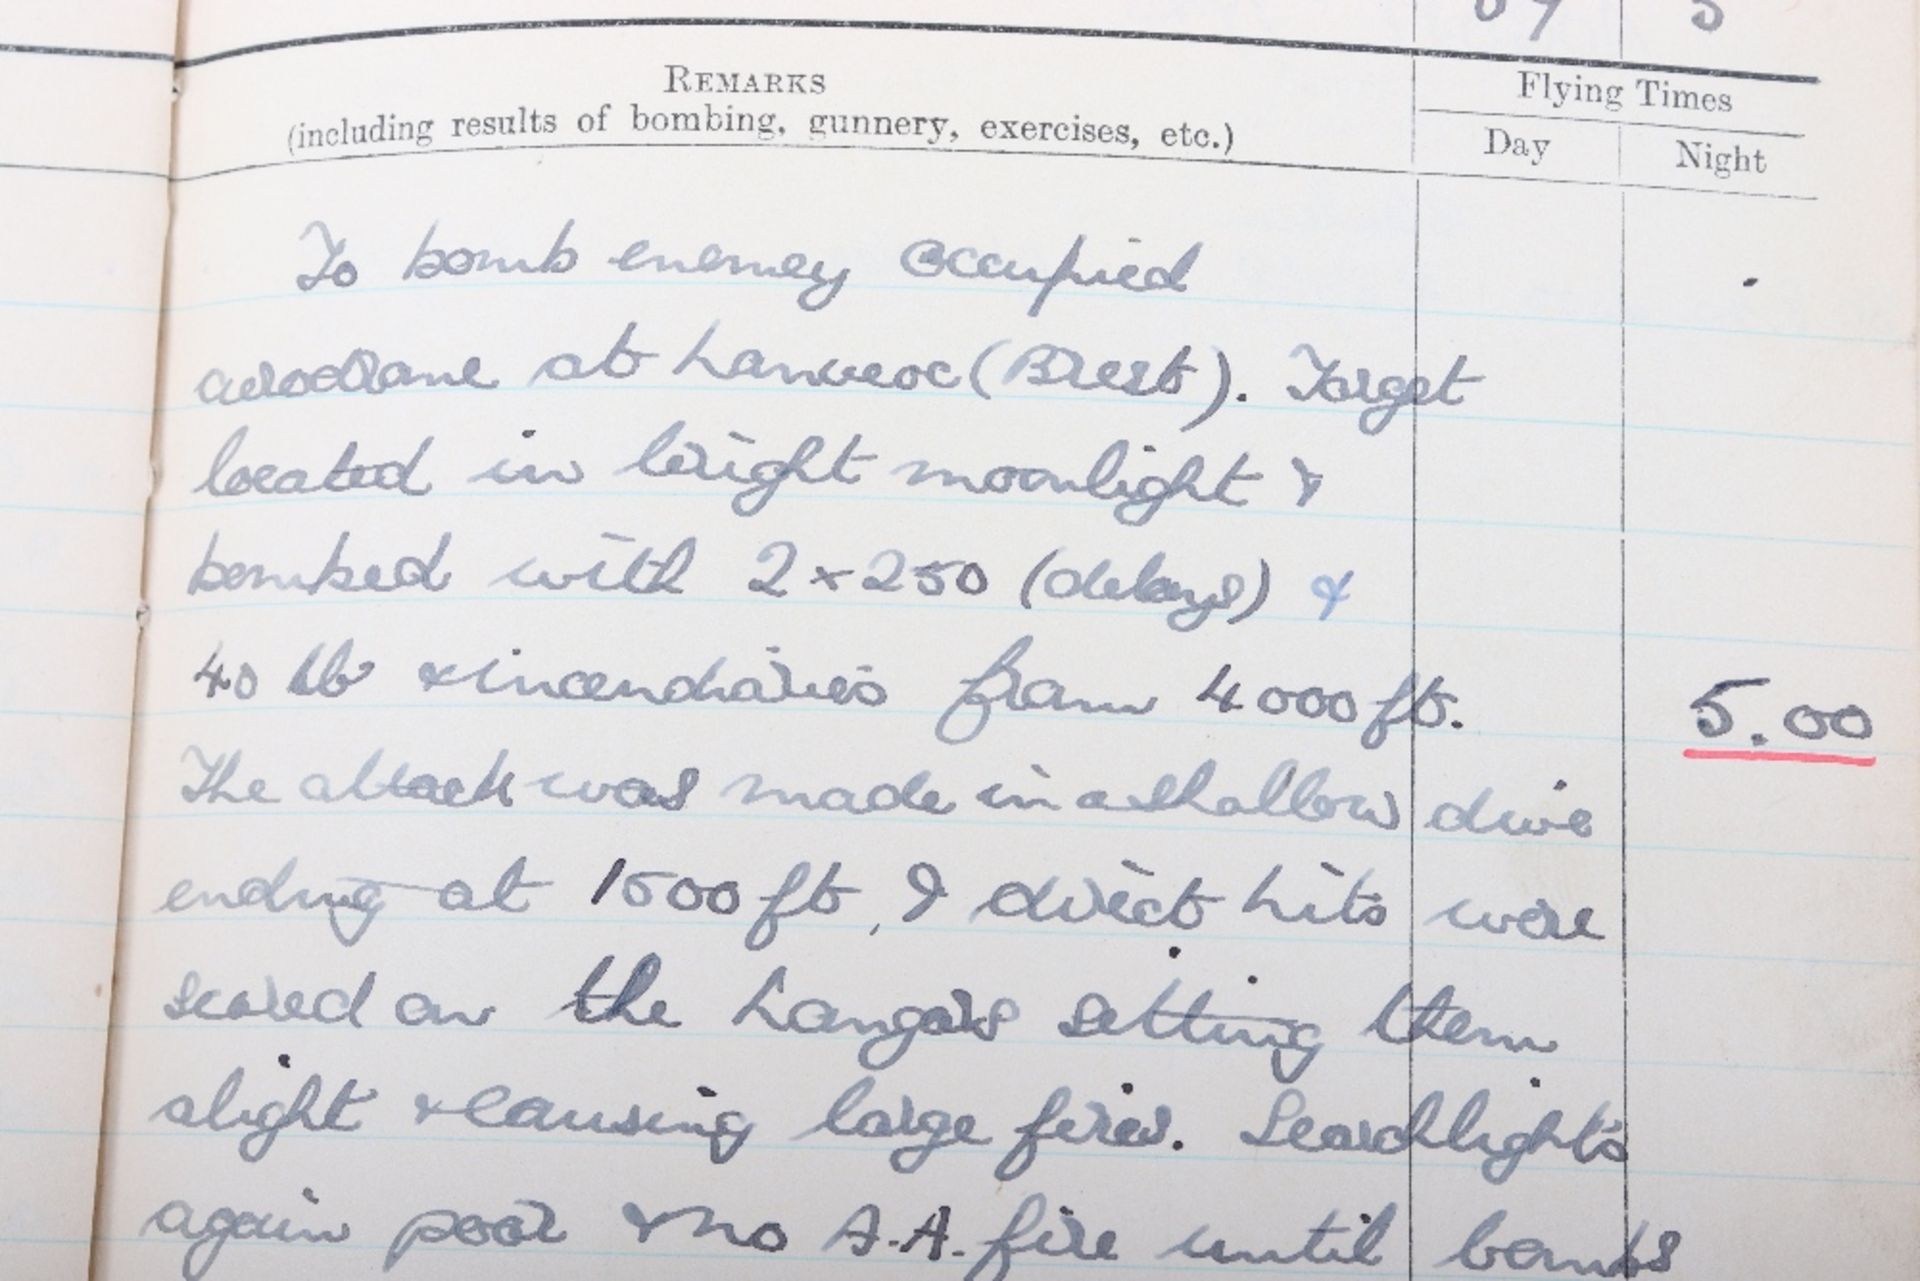 REMARKS
Flying Times
(including results of bombing, gunnery, exercises, etc.)
Day
Night
To bomb enemey occupied
aerodrome at Lanveoc (Brest). Target
located in bright moonlight &
bombed with 2 x 250 (delays) &
40 lb & incendiaries from 4000 ft.
5.00
The attack was made in a shallow dive
ending at 1500 ft, & direct hits were
scored on the hangars setting them
alight & causing large fires. Searchlights
again poor & no A.A. fire until bombs